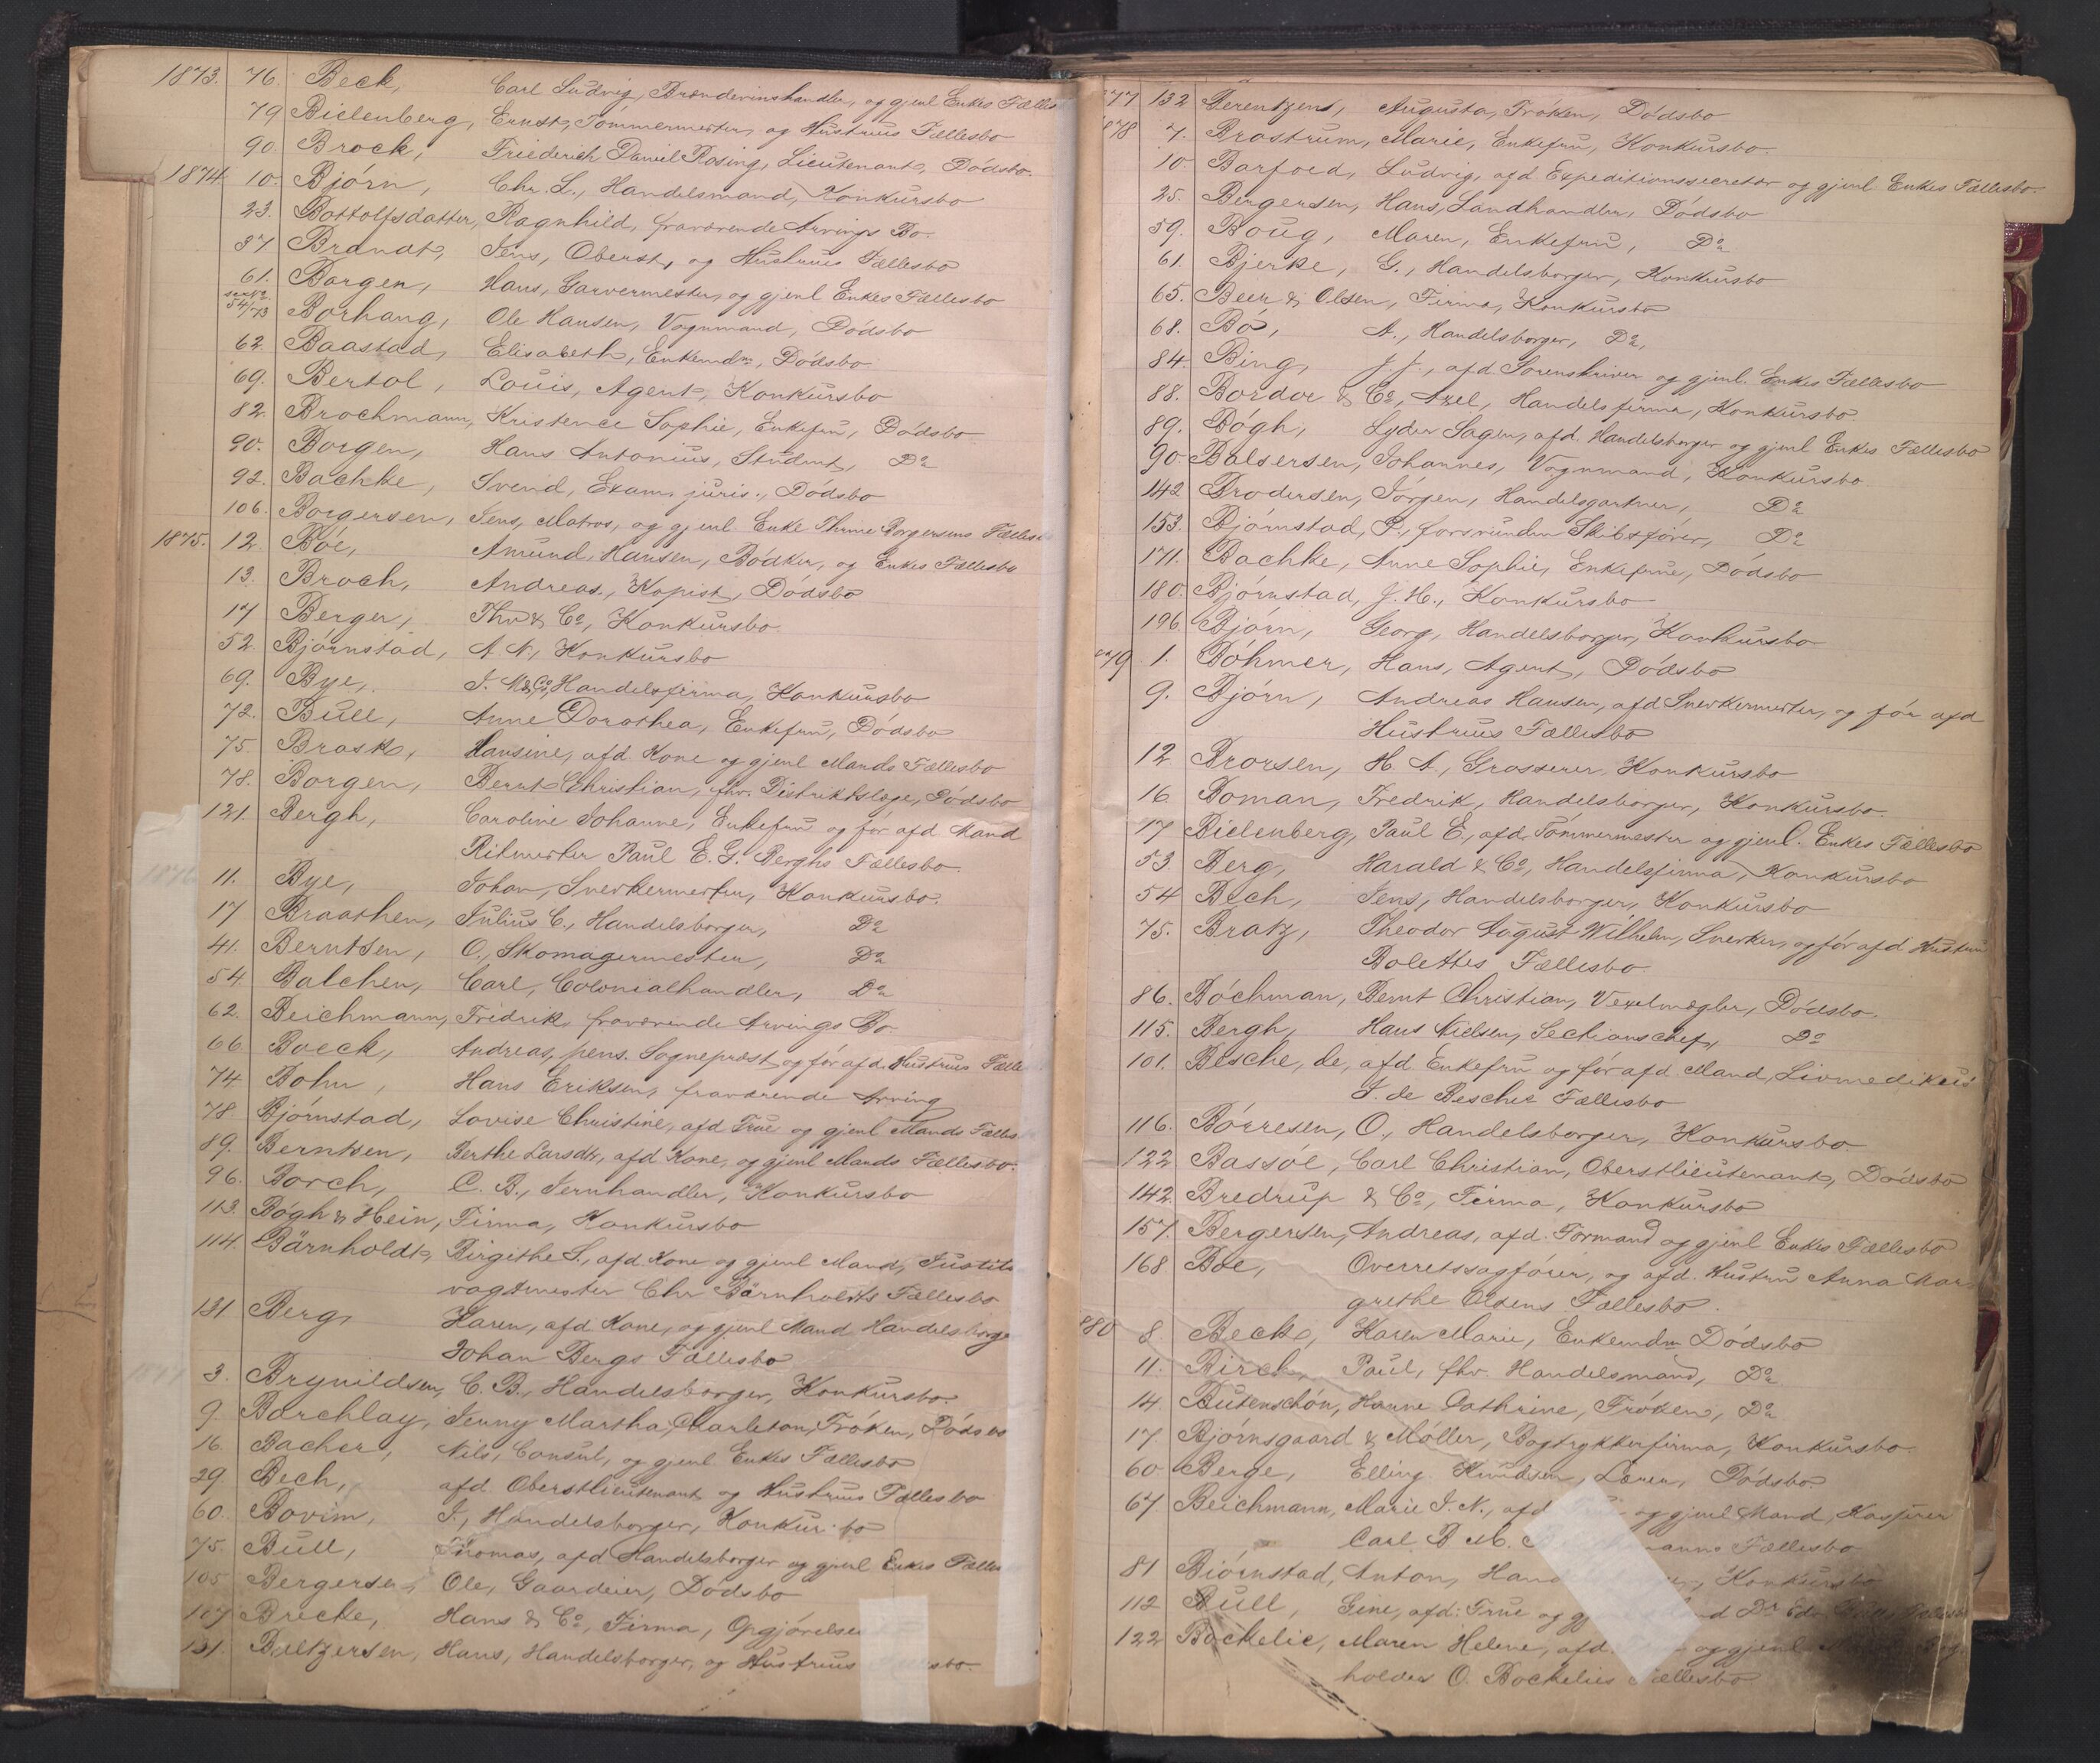 1873. 76. Beck, Carl Ludvig, Brændevinshandler, og gjenl Enkes Fælles
79 Bielenberg, Ernst, Tømmermester, og Hustrues Fællesbo
90. Brock, Friederich Daniel Rosing, Lieutenant, Dødsbo.
1874 10. Bjørn, Chr. L., Handelsmand, Konkursbo
23. Bottolfsdatter, Ragnhild, fraværende Arvings Bo.
37 Brandt, Jens, Oberst, og Hustrues Fællesbo
61. Borgen, Hans, Garvermester, og gjenl Enkes Fællesbo
se No 54/73 Borhaug, Ole Hansen, Vognmand, Dødsbo
62. Baastad, Elisabeth, Enkemdm, Dødsbo.
69. Bertol, Louis, Agent, Konkursbo
82. Brochmann, Kristence Sophie, Enkefru, Dødsbo
90. Borgen, Hans Antonius, Student, Do
92. Bachke, Svend, Exam. juris., Dødsbo
106. Borgersen, Jens, Matros, og gjenl. Enke Thrine Borgersens Fælles
1875. 12. Böe, Amund Hansen, Bödker, og Enkes Fællesbo
13. Broch, Andreas, Kopist, Dødsbo
17 Berger, Thv & Co, Konkursbo.
52. Bjørnstad, A. N., Konkursbo
69. Bye, J. M & Co, Handelsfirma, Konkursbo
72. Bull, Anne Dorothea, Enkefru, Dødsbo
75. Brask, Hansine, afd. Kone og gjenl Mands Fællesbo
78. Borgen, Bernt Christian, fhv. Distriktslæge, Dødsbo
121. Bergh, Caroline Johanne, Enkefru og før afd Mand
Ritmester Paul E. G. Berghs Fællesbo.
1876 11. Bye, Johan, Snedkermester, Konkursbo.
17 Braathen, Julius C., Handelsborger, Do
41. Berntsen, O., Skomagermester, Do
54 Balchen, Carl, Colonialhandler, Do
62. Beichmann, Fridrik, fraværende Arvings Bo
66 Boeck, Andreas, pens. Sognepræst, og før afd. Hustrues Fælle
74 Bohn, Hans Eriksen, fraværende Arving
78. Bjørnstad, Lovise Christine, afd Frue og gjenl Mands Fælles
89. Berntsen, Berthe Larsdtr, afd Kone, og gjenl Mands Fællesbo.
96. Borch, C. B., Jernhandler, Konkursbo
113. Bögh & Hein, Firma, Konkursbo
114. Bärnholdt, Birgithe S., afd. Kone og gjenl Mand, Justits
vagtmester Chr Bärnholdts Fællesbo
131 Berg, Karen, afd Kone, og gjenl Mand Handelsborge
Johan Bergs Fællesbo
3. Brynildsen, C. B., Handelsborger, Konkursbo.
9. Barchlay, Jenny Martha Charleton, Frøken, Dødsbo
16. Bacher, Nils, Consul, og gjenl Enkes Fællesbo
29. Bech, afd. Oberstlieutenant og Hustrues Fællesbo
60. Bovim, J., Handelsborger, Konkursbo
75. Bull, Thomas, afd Handelsborger og gjenl Enkes Fælles
105 Bergersen, Ole, Gaardeier, Dødsbo
107 Brecke, Hans & Co, Firma, Opgjørelse
131. Baltzersen, Hans, Handelsborger, og Hustrues
77 132 Berentzens, Augusta, Frøken, Dødsbo
1878 7. Brostrum, Marie, Enkefru, Konkursbo.
10. Barfoed, Ludvig, afd Expeditionssecretær og gjenl Enkes Fællesbo.
25. Bergersen, Hans, Landhandler, Dødsbo
59. Boug, Maren, Enkefru, Do
61. Bjerke, G., Handelsborger, Konkursbo
65. Beer & Olsen, Firma, Konkursbo
68. Bö, A., Handelsborger, Do,
84. Bing, J. J., afd. Sorenskriver og gjenl. Enkes Fællesbo
88. Bordoe & Co, Axel, Handelsfirma, Konkursbo.
89. Bögh, Lyder Sagen, afd. Handelsborger og gjenl Enkes Fællesbo
90 Balsersen, Johannes, Vognmand, Konkursbo
142 Brodersen, Jörgen, Handelsgartner, Do
153. Bjørnstad, P., forsvunden Skibsfører, Do
171. Bachke, Anne Sophie, Enkefrue, Dødsbo
180. Bjørnstad, J. H., Konkursbo
196. Bjørn, Georg, Handelsborger, Konkursbo
79 1. Böhmer, Hans, Agent, Dødsbo
9. Bjørn, Andreas Hansen, afd Snedkermester, og før afd
Hustrues Fællesbo
12 Brorsen, H. A., Grosserer, Konkursbo
16. Boman, Fredrik, Handelsborger, Konkursbo.
17 Bielenberg, Paul E., afd. Tømmermester og gjenl. Enkes Fællesbo
53. Berg, Harald & Co, Handelsfirma, Konkursbo
54 Bech, Jens, Handelsborger, Konkursbo
75. Bratz, Theodor August Wilhelm, Snedker, og før afd Hustru
Bolettes Fællesbo
86. Böchman, Bernt Christian, Vexelmægler, Dødsbo.
115. Bergh, Hans Nielsen, Sectionschef, Do
101. Besche, de, afd. Enkefru og før afd. Mand, Livmedikus
J. de Besches Fællesbo
116. Börresen, O., Handelsborger, Konkursbo.
122 Bassöe, Carl Christian, Oberstlieutenant, Dødsbo
142. Bredrup & Co, Firma, Konkursbo
157. Bergersen, Andreas, afd. Formand og gjenl Enkes Fællesbo
168 Boe, Overretssagfører, og afd. Hustru Anna Mar
grethe Olsens Fællesbo.
880 8. Beck, Karen Marie, Enkemdm Dødsbo
11. Birch, Paul, fhv. Handelsmand, Do
14. Butenschön, Hanne Cathrine, Frøken, Do
17. Bjørnsgaard & Møller, Bogtrykkerfirma, Konkursbo.
60 Berge, Elling Knudsen, Lærer, Dødsbo.
67. Beichmann, Marie J. N., afd og gjenl Mand, Kasserer
Carl B M. Fællesbo
81 Bjørnstad, Anton, Konkursbo
112 Bull, Gine, afd. Frue og
122 Bockelie, Maren Helene, afd. og gjenl
holder O. Bockelies Fællesbo